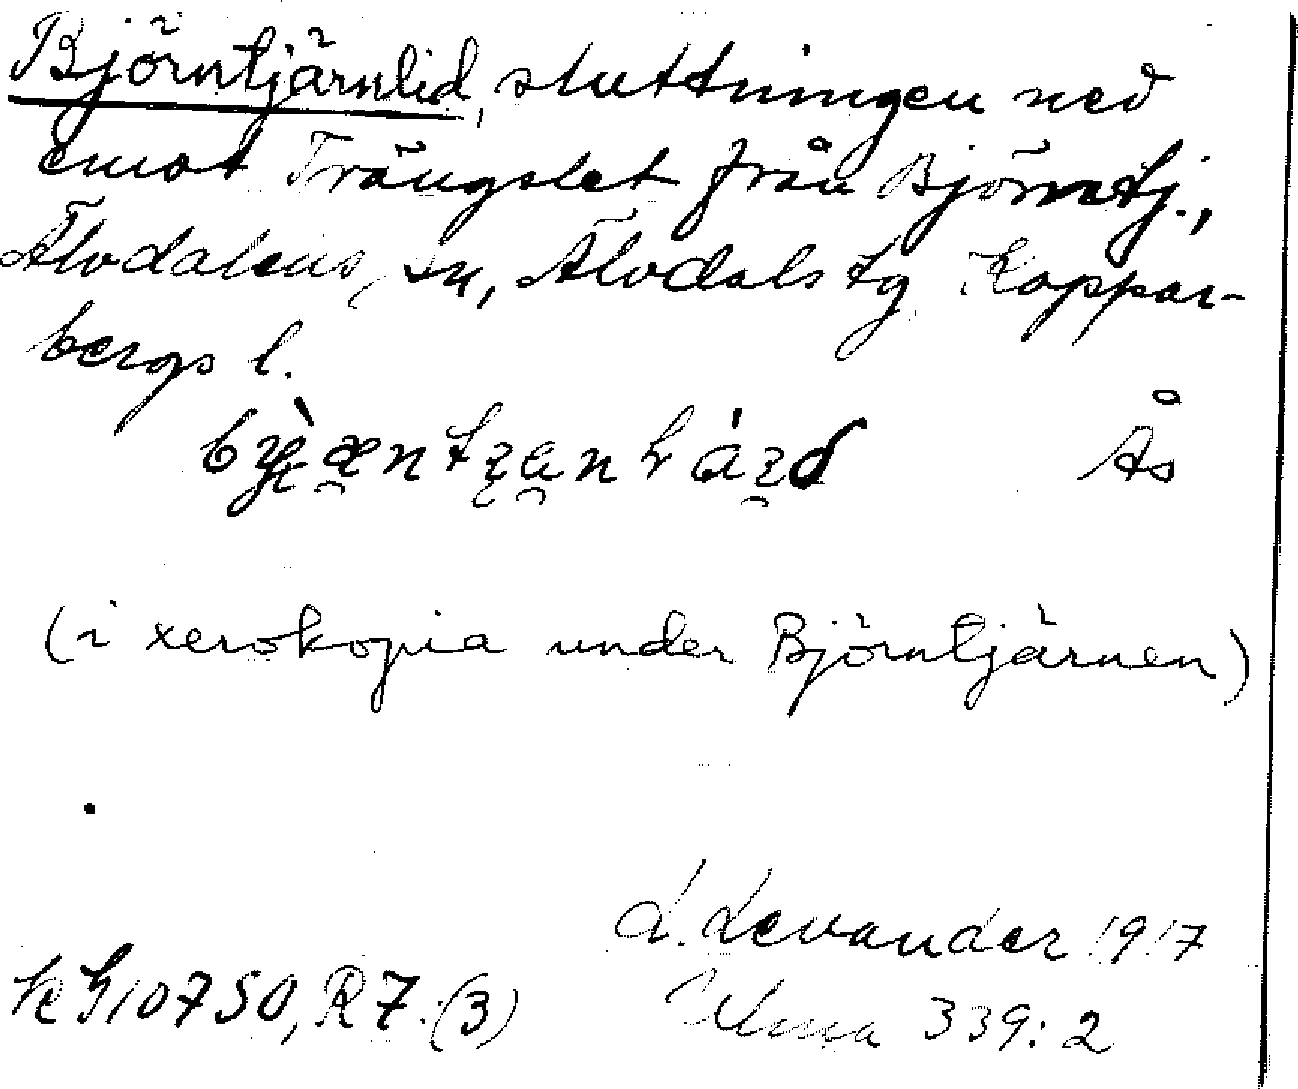 Björntjärnlid, sluttningen ned
emot Trängslet från Björntj.,
Älvdalens sn, Älvdals tg Koppar-
bergs l.
Ås
(i xerokopia under Björntjärnen)
L. Levander 1917
kg 10750, R7. (3)
Ulma 339:2